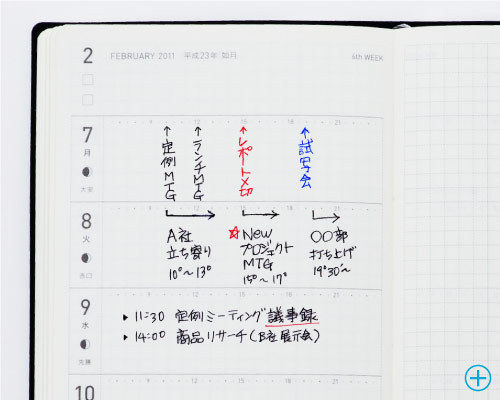 2
FEBRUARY 2011 平成23年 如月
6th WEEK
9 12 15 18 21
7
月
大安
↑定例MTG
↑ランチMTG
↑レポート〆切
↑試写会
8
火
赤口
A社
立ち寄り
10°~13°
☆New
プロジェクト
MTG
15°~17°
○○部
打ち上げ
19°30'~
9
水
先勝
▸11:30 定例ミーティング議事録
▸14:00 商品リサーチ(B社展示会)
10